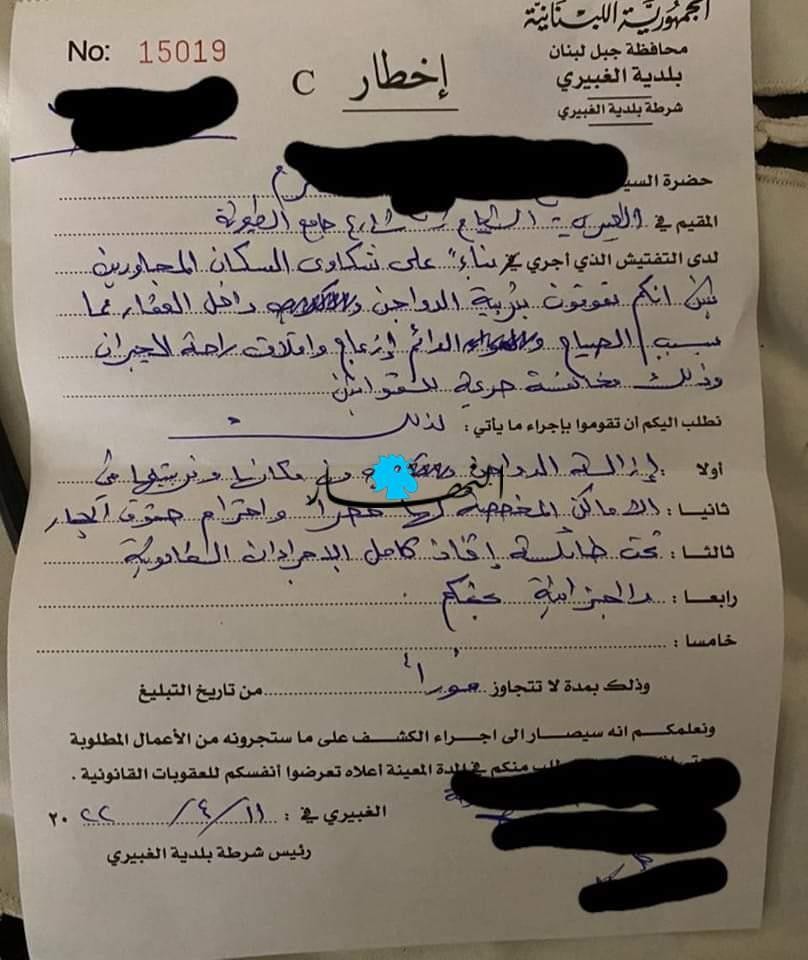 الجمهورية اللبنانية
محافظة جبل لبنان
بلدية الغبيري
شرطة بلدية الغبيري
No: 15019
إخطار C
حضرة السيد
المقيم في الغبيري - الشياح شارع جامع الطيونة
لدى التفتيش الذي أجري في بناءً على شكاوى السكان المجاورين
تبين انكم تقومون بتربية الدواجن داخل العقار مما
يسبب الصياح الدائم إزعاج واقلاق راحة الجيران
وذلك مخالفة للقوانين
نطلب اليكم أن تقوموا بإجراء ما يأتي: لذلك
أولا : إزالة الدواجن من مكانها وتربيتها في
ثانيا : الاماكن المخصصة لها واحترام حقوق الجار
ثالثا : تحت طائلة إتخاذ كامل الاجراءات القانونية
رابعا : والجزائية بحقكم .
خامسا :
وذلك بمدة لا تتجاوز فوراً من تاريخ التبليغ
ونعلمكم انه سيصار الى اجراء الكشف على ما ستجرونه من الأعمال المطلوبة
منكم في المدة المعينة أعلاه تعرضوا أنفسكم للعقوبات القانونية .
الغبيري في : ١١ / ٤ / ٢٠٢٢
رئيس شرطة بلدية الغبيري
النهار